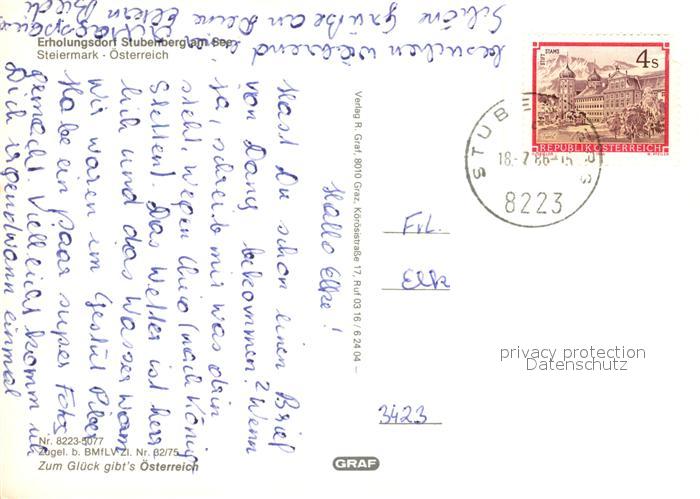 Erholungsdorf Stubenberg am See
Steiermark - Österreich
Hallo Elke!
Hast Du schon einen Brief
von Dany bekommen? Wenn
ja, schreib mir was drin
steht, wegen Chio (nach König
Stetten). Das Wetter ist herr
lich und das Wasser warm
Wir waren im Gestüt Piber
Habe ein paar super Fotos
gemacht. Vielleicht komm ich
Dich irgendwann einmal
besuchen während
Schöne Grüße an Deine Eltern
Verlag R. Graf, 8010 Graz, Körösistraße 17, Ruf 03 16 / 6 24 04 —
STIFT STAMS
4 S
REPUBLIK ÖSTERREICH
STUB
18.-7.86-15
8223
Frl.
Elke
privacy protection
Datenschutz
3423
Nr. 8223-5077
Zugel. b. BMfLV Zl. Nr. 62/75
Zum Glück gibt's Österreich
GRAF